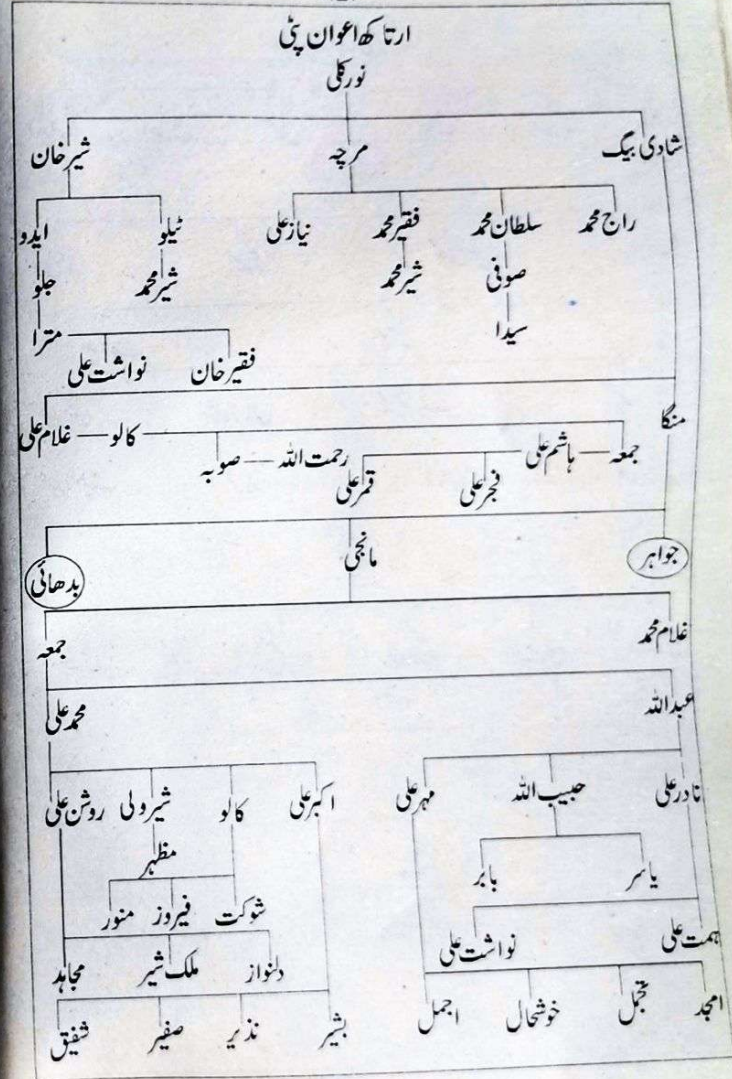 ارتاکھ اعوان پٹی
نور کلی
شادی بیگ مرچہ شیر خان
راج محمد سلطان محمد فقیر محمد نیاز علی ٹیلو ایدو
صوفی شیر محمد شیر محمد جلو
سیدا مترا
فقیر خان نواشت علی
منگا
کالو غلام علی
جمعہ ہاشم علی رحمت اللہ صوبہ
فجر علی قمر علی
جواہر مانجی بدھائی
غلام محمد جمعہ
عبداللہ محمد علی
نادر علی حبیب اللہ مہر علی اکبر علی کالو شیر ولی روشن علی
مظہر
یاسر بابر
شوکت فیروز منور
ہمت علی نواشت علی
دلنواز ملک شیر مجاہد
امجد تجمل خوشحال اجمل بشیر نذیر صفیر شفیق